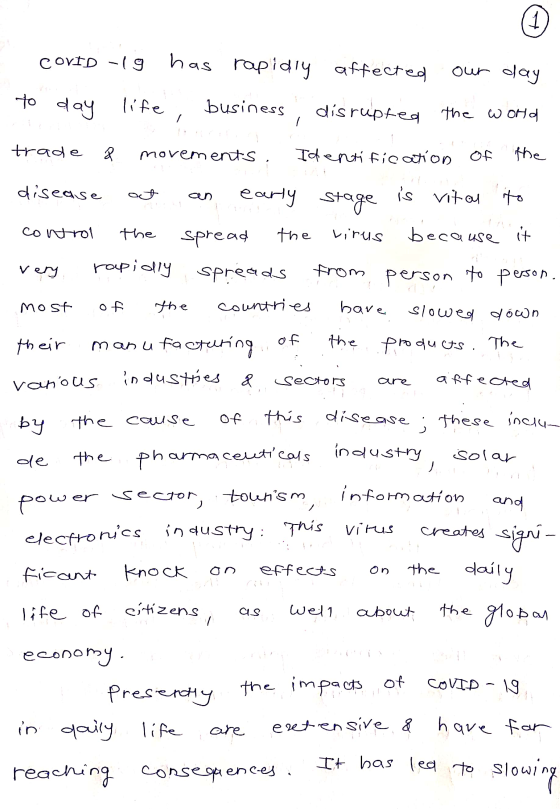 1
COVID-19 has rapidly affected our day
to day life, business, disrupted the world
trade & movements. Identification of the
disease at an early stage is vital to
control the spread the virus because it
very rapidly spreads from person to person.
most of the countries have slowed down
their manufacturing of the products. The
various industries & sectors are affected
by the cause of this disease; these inclu-
de the pharmaceuticals industry, solar
power sector, tourism, information and
electronics industry. This virus creates signi-
ficant knock on effects on the daily
life of citizens, as well about the global
economy.
Presently the impacts of COVID-19
in daily life are extensive & have far
reaching consequences. It has led to slowing